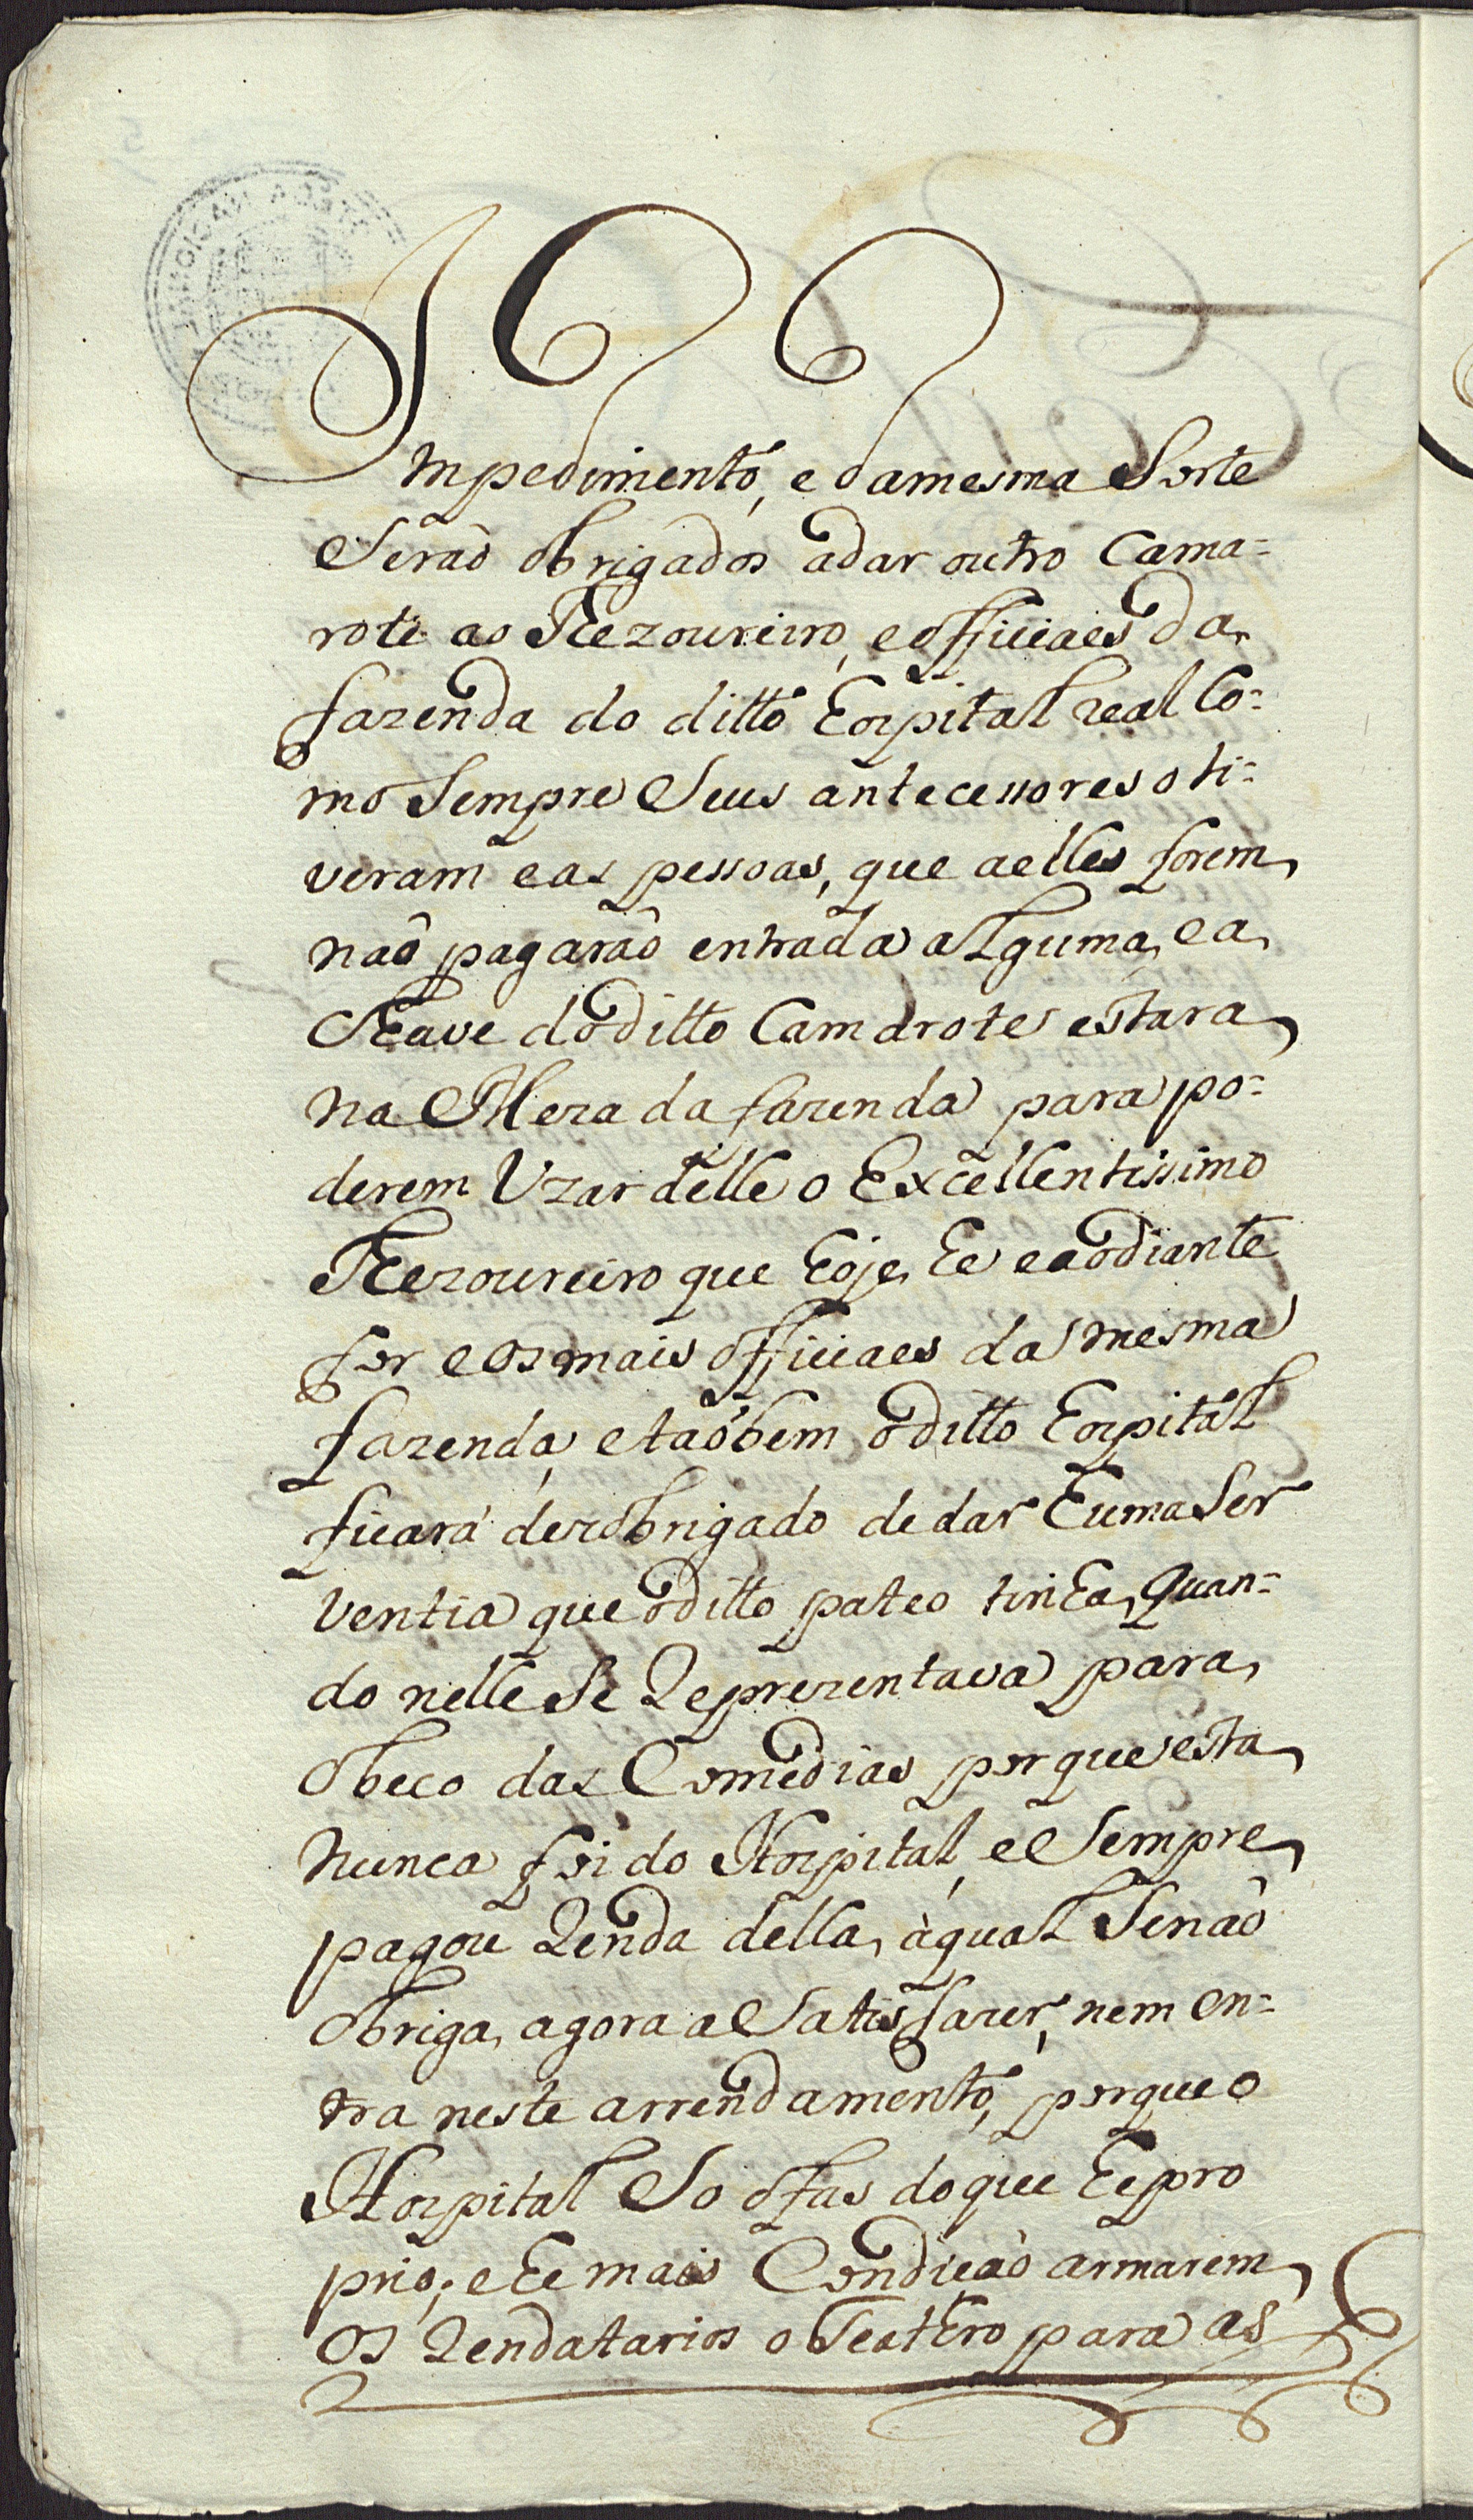 Impedimento, e damesma Sorte
Seraõ obrigados adar outro Cama=
rote ao Thezoureiro, eofficiaes da
fazenda do ditto hospital real Co=
mo Sempre Seus antecessores o ti=
veram eas pessoas, que aelles forem
naõ pagaraõ entrada alguma, ea
Chave doditto Camarote estara
na Meza da fazenda para po=
derem Vzar delle o Excellentissimo
Thezoureiro que hoje he eaodiante
for eos mais officiaes da mesma
fazenda, etaõbem oditto hospital
ficará dezobrigado dedar huma Ser
ventia que oditto pateo tinha, quan=
do nelle Se Reprezentava para
obeco das Comedias porque esta
nunca foi do Hospital, e Sempre
pagou Renda della, àqual Senaõ
obriga, agora a Satisfazer, nem en=
tra neste arrendamento, porque o
Hospital So ofas doque he pro
prio; e he mais Condicaõ armarem
os Rendatarios o Teathro para as